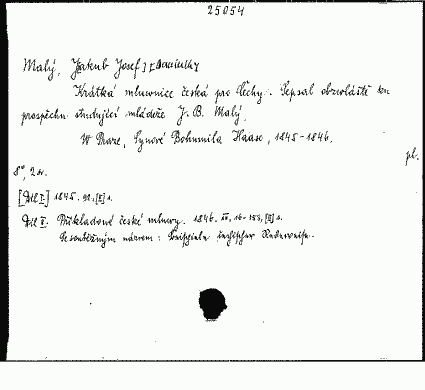 25054
Malý, Jakub Josef
Krátká mluwnice česká pro Čechy. Sepsal obzwláště ku
prospěchu studující mládeže J. B. Malý.
W Praze, Synowé Bohumila Haase, 1845-1846.
pl.
8°, 2 sv.
[Díl I.] 1845. 92, [II] s.
Díl II. Příkladowé české mluwy. 1846. IV, 16-153, [II] s.
Se souběžným názvem: Beispiele čechischer Redeweise.